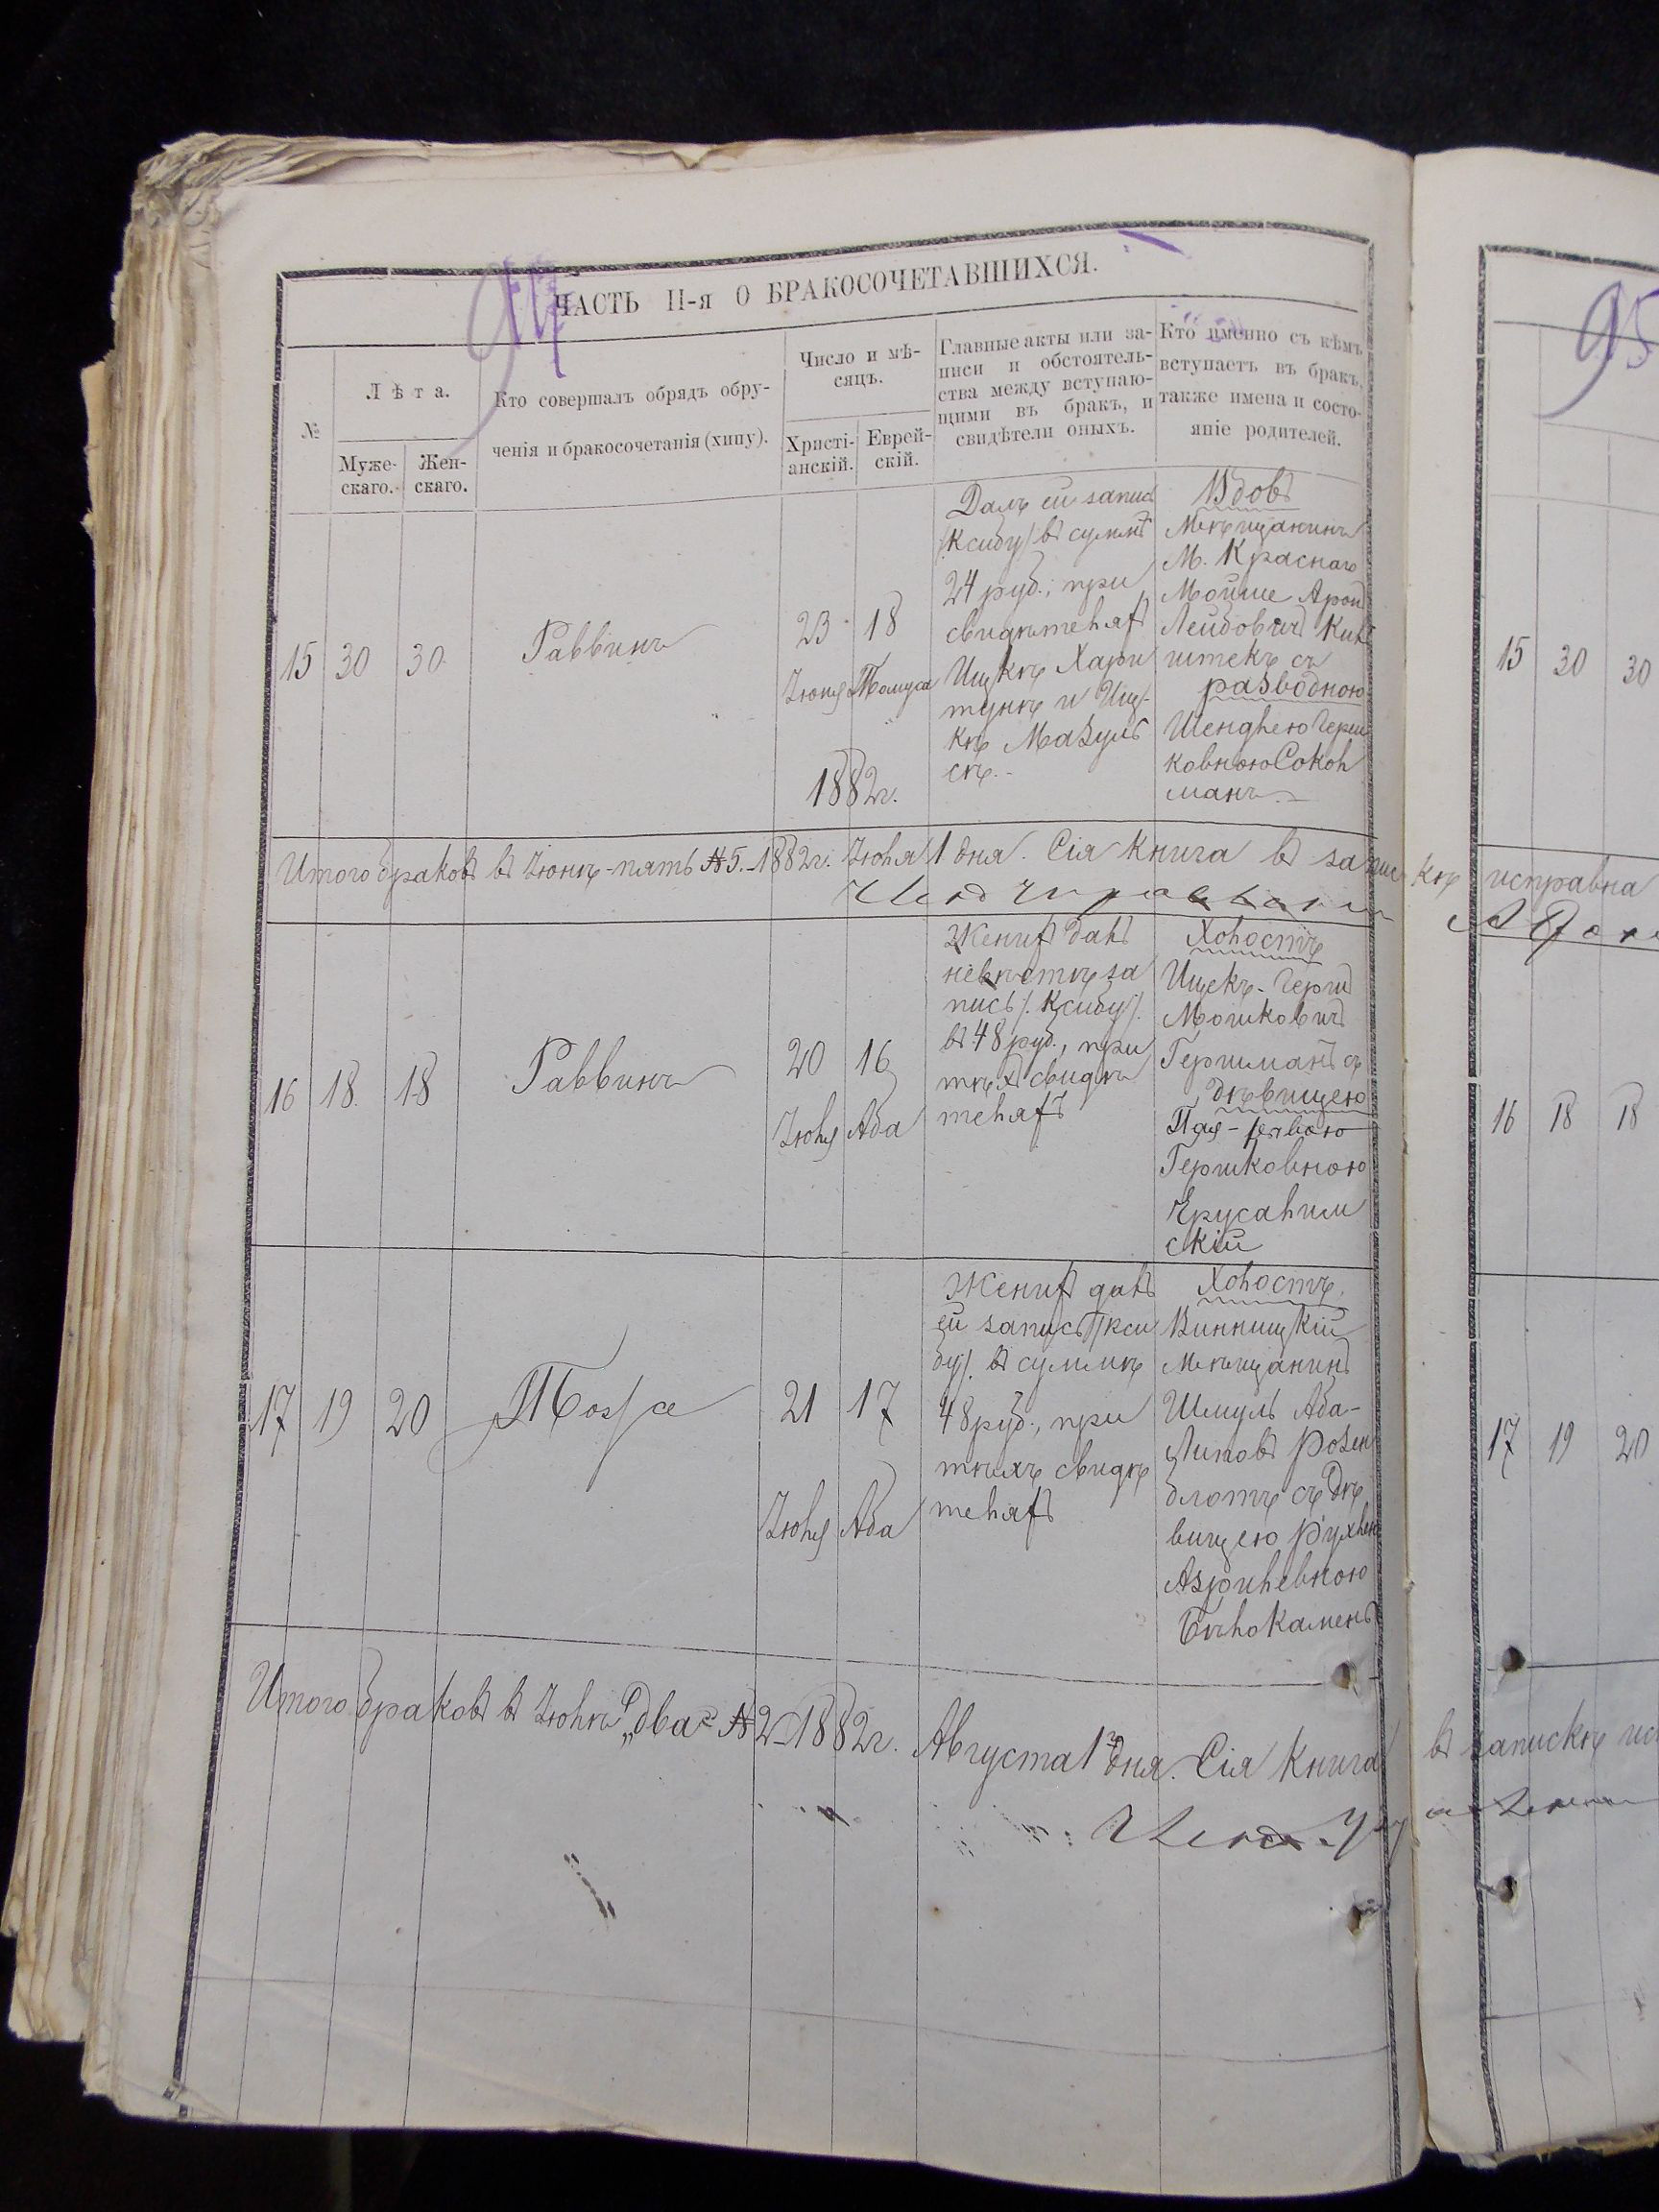 94
ЧАСТЬ II-я О БРАКОСОЧЕТАВШИХСЯ.
№
Лѣта.
Муже-
скаго.
Жен-
скаго.
Кто совершалъ обрядъ обру-
ченія и бракосочетанія (хипу).
Число и мѣ-
сяцъ.
Христі-
анскій.
Еврей-
скій.
Главные акты или за-
писи и обстоятель-
ства между вступаю-
щими въ бракъ, и
свидѣтели оныхъ.
Кто именно съ кѣмъ
вступаетъ въ бракъ,
также имена и состо-
яніе родителей.
15
30
30
Раввинъ
23
Іюня
18
Тамуса
1882г.
Далъ ей запись
/Ксибу/ въ суммѣ
24 руб., при
свидѣтеляхъ
Ицкѣ Хари
тунѣ и Иц-
кѣ Мазуль
скѣ.-
Вдовъ
Мѣщанинъ
М. Краснаго
Мойше Арон
Лейбовичъ
штекъ съ
разводною
Шендлею Герш
ковною Сокол
манъ.-
Итого браковъ въ Іюнѣ-пять №5.-1882г. Іюля 1 дня. Сія Книга въ запискѣ исправна
16
18
18
Раввинъ
20
Іюля
16
Аба
Женихъ далъ
невѣстѣ за
пись/. Ксибу/.
въ 48 руб., при
тѣхъ свидѣ
теляхъ
Холостъ
Ицекъ-Герш
Мошковичъ
Гершманъ съ
дѣвицею
Гершковною
Ерусалим
скій
17
19
20
Тоже
21
Іюля
17
Аба
Женихъ далъ
ей запись /кси
бу/. въ суммѣ
48 руб., при
тѣхъ свидѣ
теляхъ
Холостъ.
Винницкій
мѣщанинъ
Шмуль Аба-
Липовъ Розен
блотъ съ дѣ
вицею Рухлею
Азрилевною
Бѣлокамень
Итого браковъ въ Іюлѣ „два" №2-1882г. Августа 1 дня. Сія Книга въ запискѣ ис
95
15
30
30
16
18
18
17
19
20